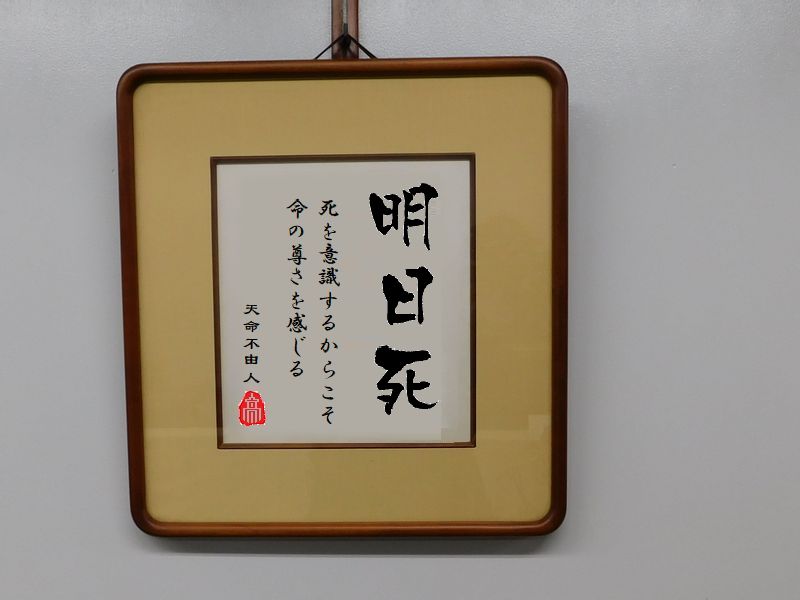 明日死
死を意識するからこそ
命の尊さを感じる
天命不由人